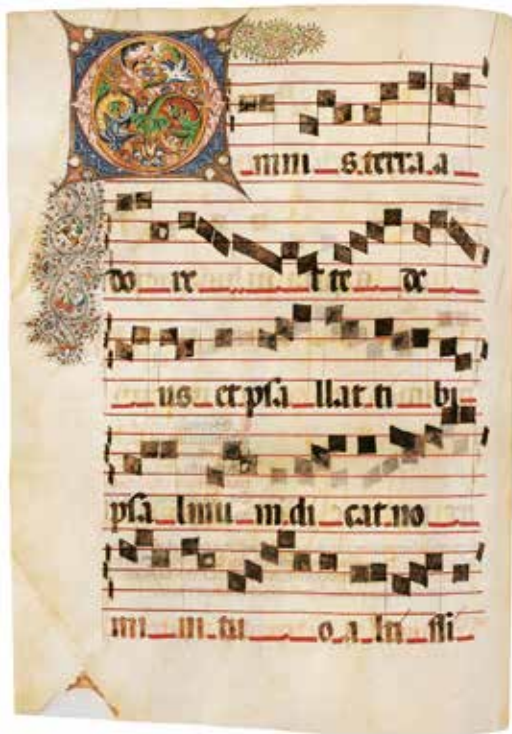 O mni s. terra. a
do re t te. de
us et psa llat. ti bi
psa lmu m. di cat. no
mi ni. tu o. a. lti ssi